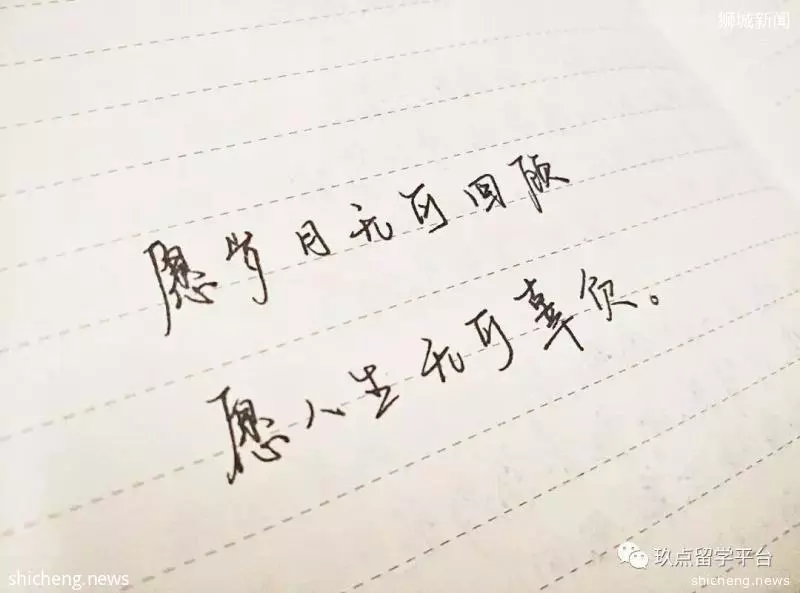 狮城新闻
愿岁月无可回顾
愿人生无可辜负。
玖点留学平台
shicheng.news
shicheng.news